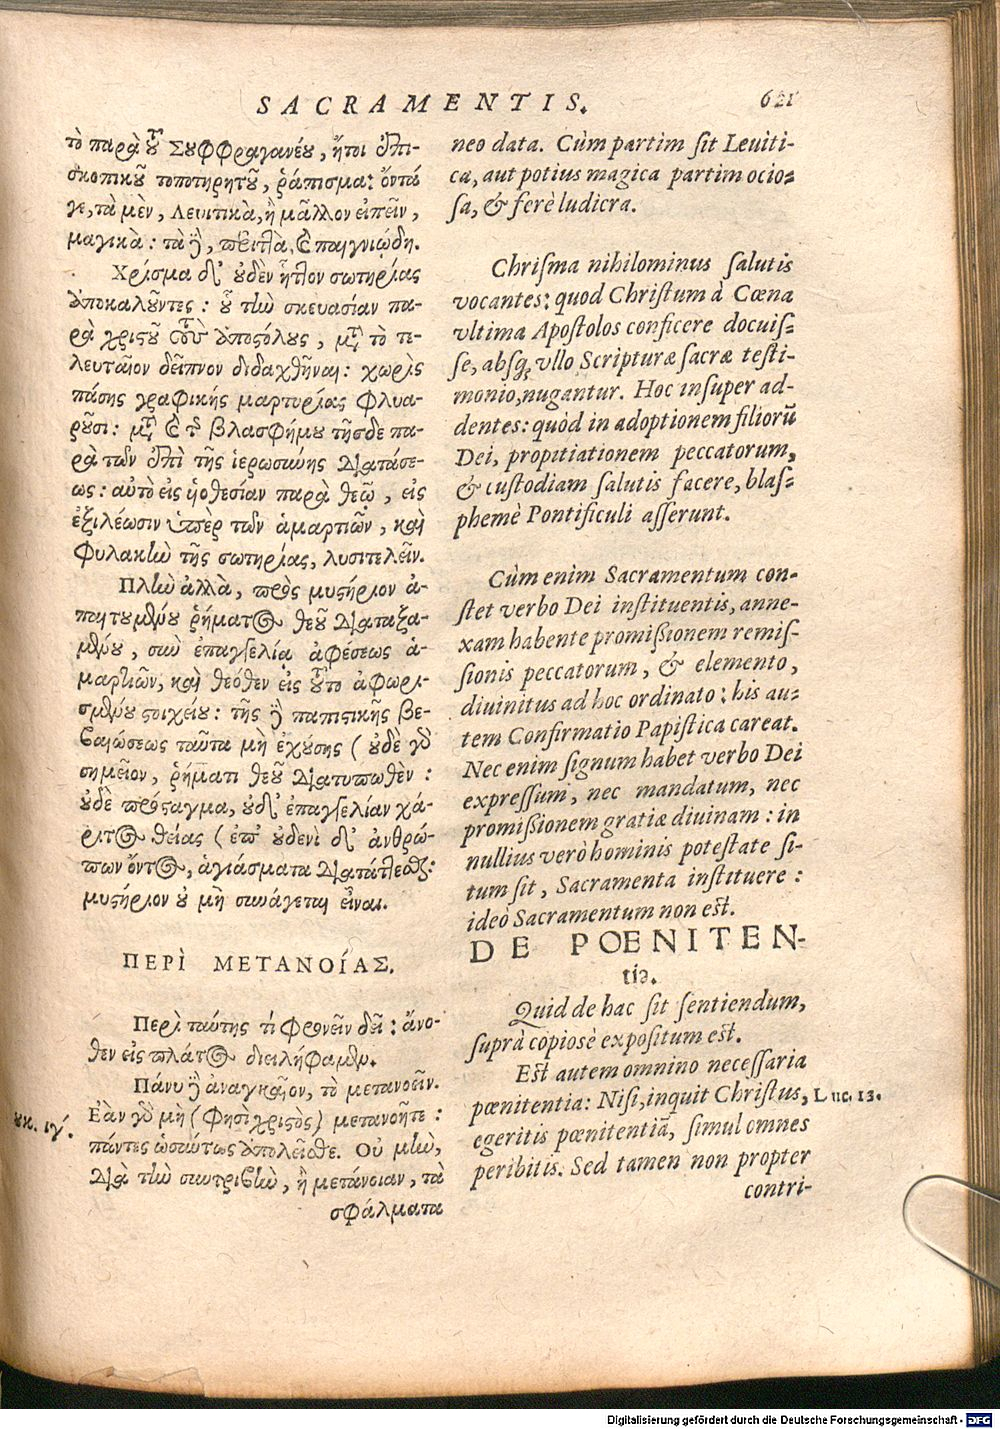 SACRAMENTIS. 621
τὸ παρὰ τοῦ Συφφραγανέου, ἤτοι ἐπι-
σκοπικοῦ τοποτηρητοῦ, ῥάπισμα: ὄντα
γε, τὰ μὲν, Λευιτικὰ, ἢ μᾶλλον εἰπεῖν,
μαγικὰ: τὰ δὲ, περιττὰ, καὶ παιγνιώδη.
Χρίσμα δ' οὐδὲν ἧττον σωτηρίας
ἀποκαλοῦντες: οὗ τὴν σκευασίαν πα-
ρὰ χριστοῦ τοὺς ἀποστόλους, μετὰ τὸ τε-
λευταῖον δεῖπνον διδαχθῆναι: χωρὶς
πάσης γραφικῆς μαρτυρίας φλυα-
ροῦσι: μετὰ καὶ τοῦ βλασφήμου τῆσδε πα-
ρὰ τῶν ἐπὶ τῆς ἱερωσύνης διατάσε-
ως: αὐτὸ εἰς υἱοθεσίαν παρὰ θεῷ, εἰς
ἐξιλέωσιν ὑπὲρ τῶν ἁμαρτιῶν, καὶ
φυλακὴν τῆς σωτηρίας, λυσιτελεῖν.
Πλὴν ἀλλὰ, πρὸς μυστήριον ἀ-
παιτουμένου ῥήματος θεοῦ διαταξα-
μένου, σὺν ἐπαγγελίᾳ ἀφέσεως ἁ-
μαρτιῶν, καὶ θεόθεν εἰς τοῦτο ἀφωρι-
σμένου στοιχείου: τῆς δὲ παπιστικῆς βε-
βαιώσεως ταῦτα μὴ ἐχούσης (οὐδὲ γὰρ
σημεῖον, ῥήματι θεοῦ διατυπωθὲν:
οὐδὲ πρόσταγμα, οὐδ' ἐπαγγελίαν χά-
ριτος θείας (ἐπ' οὐδενὶ δ' ἀνθρώ-
πων ὄντος, ἁγιάσματα διατάττεσθαι:
μυστήριον οὐ μὴ συνάγεται εἶναι.
ΠΕΡὶ ΜΕΤΑΝΟίΑΣ.
Περὶ ταύτης τί φρονεῖν δεῖ: ἄνο-
θεν εἰς πλάτος διειλήφαμεν.
Πάνυ δὲ ἀναγκαῖον, τὸ μετανοεῖν.
ουκ. ιγʹ. Ἐὰν γὰρ μὴ (φησὶ χριστὸς) μετανοῆτε:
πάντες ὡσαύτως ἀπολεῖσθε. Οὐ μὴν,
διὰ τὴν συντριβὴν, ἢ μετάνοιαν, τὰ
σφάλματα
neo data. Cùm partim sit Leuiti-
ca, aut potius magica partim ocio-
sa, & ferè ludicra.
Chrisma nihilominus salutis
vocantes: quod Christum à Cœna
vltima Apostolos conficere docuis-
se, absq; vllo Scripturæ sacræ testi-
monio, nugantur. Hoc insuper ad-
dentes: quòd in adoptionem filiorũ
Dei, propitiationem peccatorum,
& custodiam salutis facere, blas-
phemè Pontificuli asserunt.
Cùm enim Sacramentum con-
stet verbo Dei instituentis, anne-
xam habente promißionem remis-
sionis peccatorum, & elemento,
diuinitus ad hoc ordinato: his au-
tem Confirmatio Papistica careat.
Nec enim signum habet verbo Dei
expressum, nec mandatum, nec
promißionem gratiæ diuinam: in
nullius verò hominis potestate si-
tum sit, Sacramenta instituere:
ideò Sacramentum non est.
DE POENITEN-
tia.
Quid de hac sit sentiendum,
suprà copiosè expositum est.
Est autem omnino necessaria
pœnitentia: Nisi, inquit Christus, Luc. 13.
egeritis pœnitentiã, simul omnes
peribitis. Sed tamen non propter
contri-
Digitalisierung gefördert durch die Deutsche Forschungsgemeinschaft - DFG